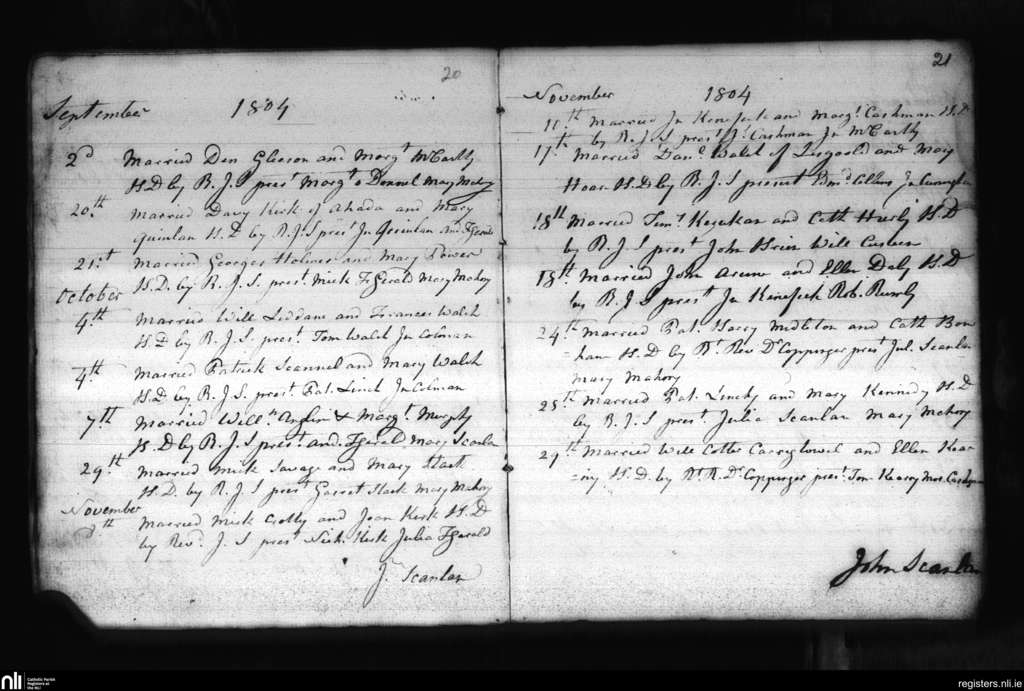 20
September 1804
2d Married Den Gleeson and Margt McCarthy
H.D by R.J.S prest Margt o Donnel Mary Mahony
20th Married Davy Kirk of Ahada and Mary
Quinlan H.D by R.J.S prest Jn Quinlan and
21st Married Georges Holmes and Mary Power
H.D. by R.J.S. prest Mick FGerald Mary Mahony
October
4th Married Will Liddane and Frances Walsh
H.D by R.J.S. prest Tom Walsh Jn Colman
4th Married Patrick Scannel and Mary Walsh
H.D by R.J.S. prest Pat. Linch Jn Colman
7th Married Willm Anglin & Margt Murphy
H.D by R.J.S prest and. FGerald Mary Scanlan
29th Married Mick Savage and Mary Slack
H.D. by R.J.S prest Garret Slack Mary Mahony
November
8th Married Mick Crotty and Joan Kirk H.D
by Revd J.S prest Nich Kirk Julia FGerald
J. Scanlan
21
November 1804
11th Married Jn Kenefeck and Margt Cashman H.D
by R.J.S prest J. Cashman Jn McCarthy
17th Married Danl Walsh of Lisgoold and Mary
Hoar H.D by R.J.S present Edmd Collins Jn
18th Married Timy and Cath Hurly H.D
by R.J.S prest John Will
18th Married John and Ellen Daly H.D
by R.J.S prest Jn Kenefeck Rob.
24th Married Pat. Harry Midleton and Cath Bon
=han H.D by Rt Revd Dr Coppinger prest Jul. Scanlan
Mary Mahony
25th Married Pat. Linchy and Mary Kennedy H.D
by R.J.S prest Julia Scanlan Mary Mahony
29th Married Will Cotter Carrigtowil and Ellen Kear
=ny H.D. by Rt R. Dr Coppinger prest Tom Kearny
John Scanlan
nli
Catholic Parish
Registers at
the NLI
registers.nli.ie